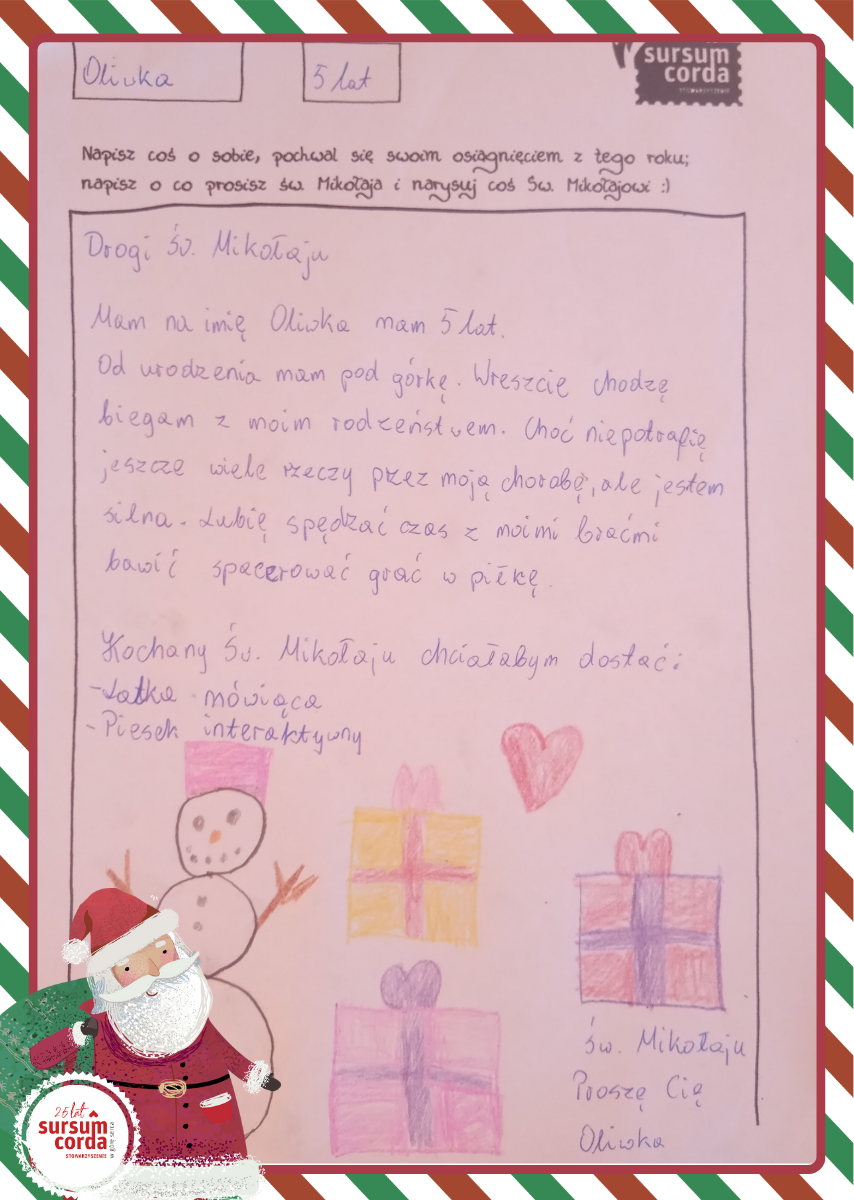 Oliwka
5 lat
sursum
corda
STOWARZYSZENIE
Napisz coś o sobie, pochwal się swoim osiągnięciem z tego roku;
napisz o co prosisz św. Mikołaja i narysuj coś Św. Mikołajowi :)
Drogi Św. Mikołaju
Mam na imię Oliwka mam 5 lat.
Od urodzenia mam pod górkę. Wreszcie chodzę
biegam z moim rodzeństwem. Choć niepotrafię
jeszcze wiele rzeczy przez moją chorobę, ale jestem
silna. Lubię spędzać czas z moimi braćmi
bawić spacerować grać w piłkę.
Kochany Św. Mikołaju chciałabym dostać:
- Lalka mówiąca
- Piesek interaktywny
Św. Mikołaju
Proszę Cię
Oliwka
25 lat
sursum
corda
STOWARZYSZENIE